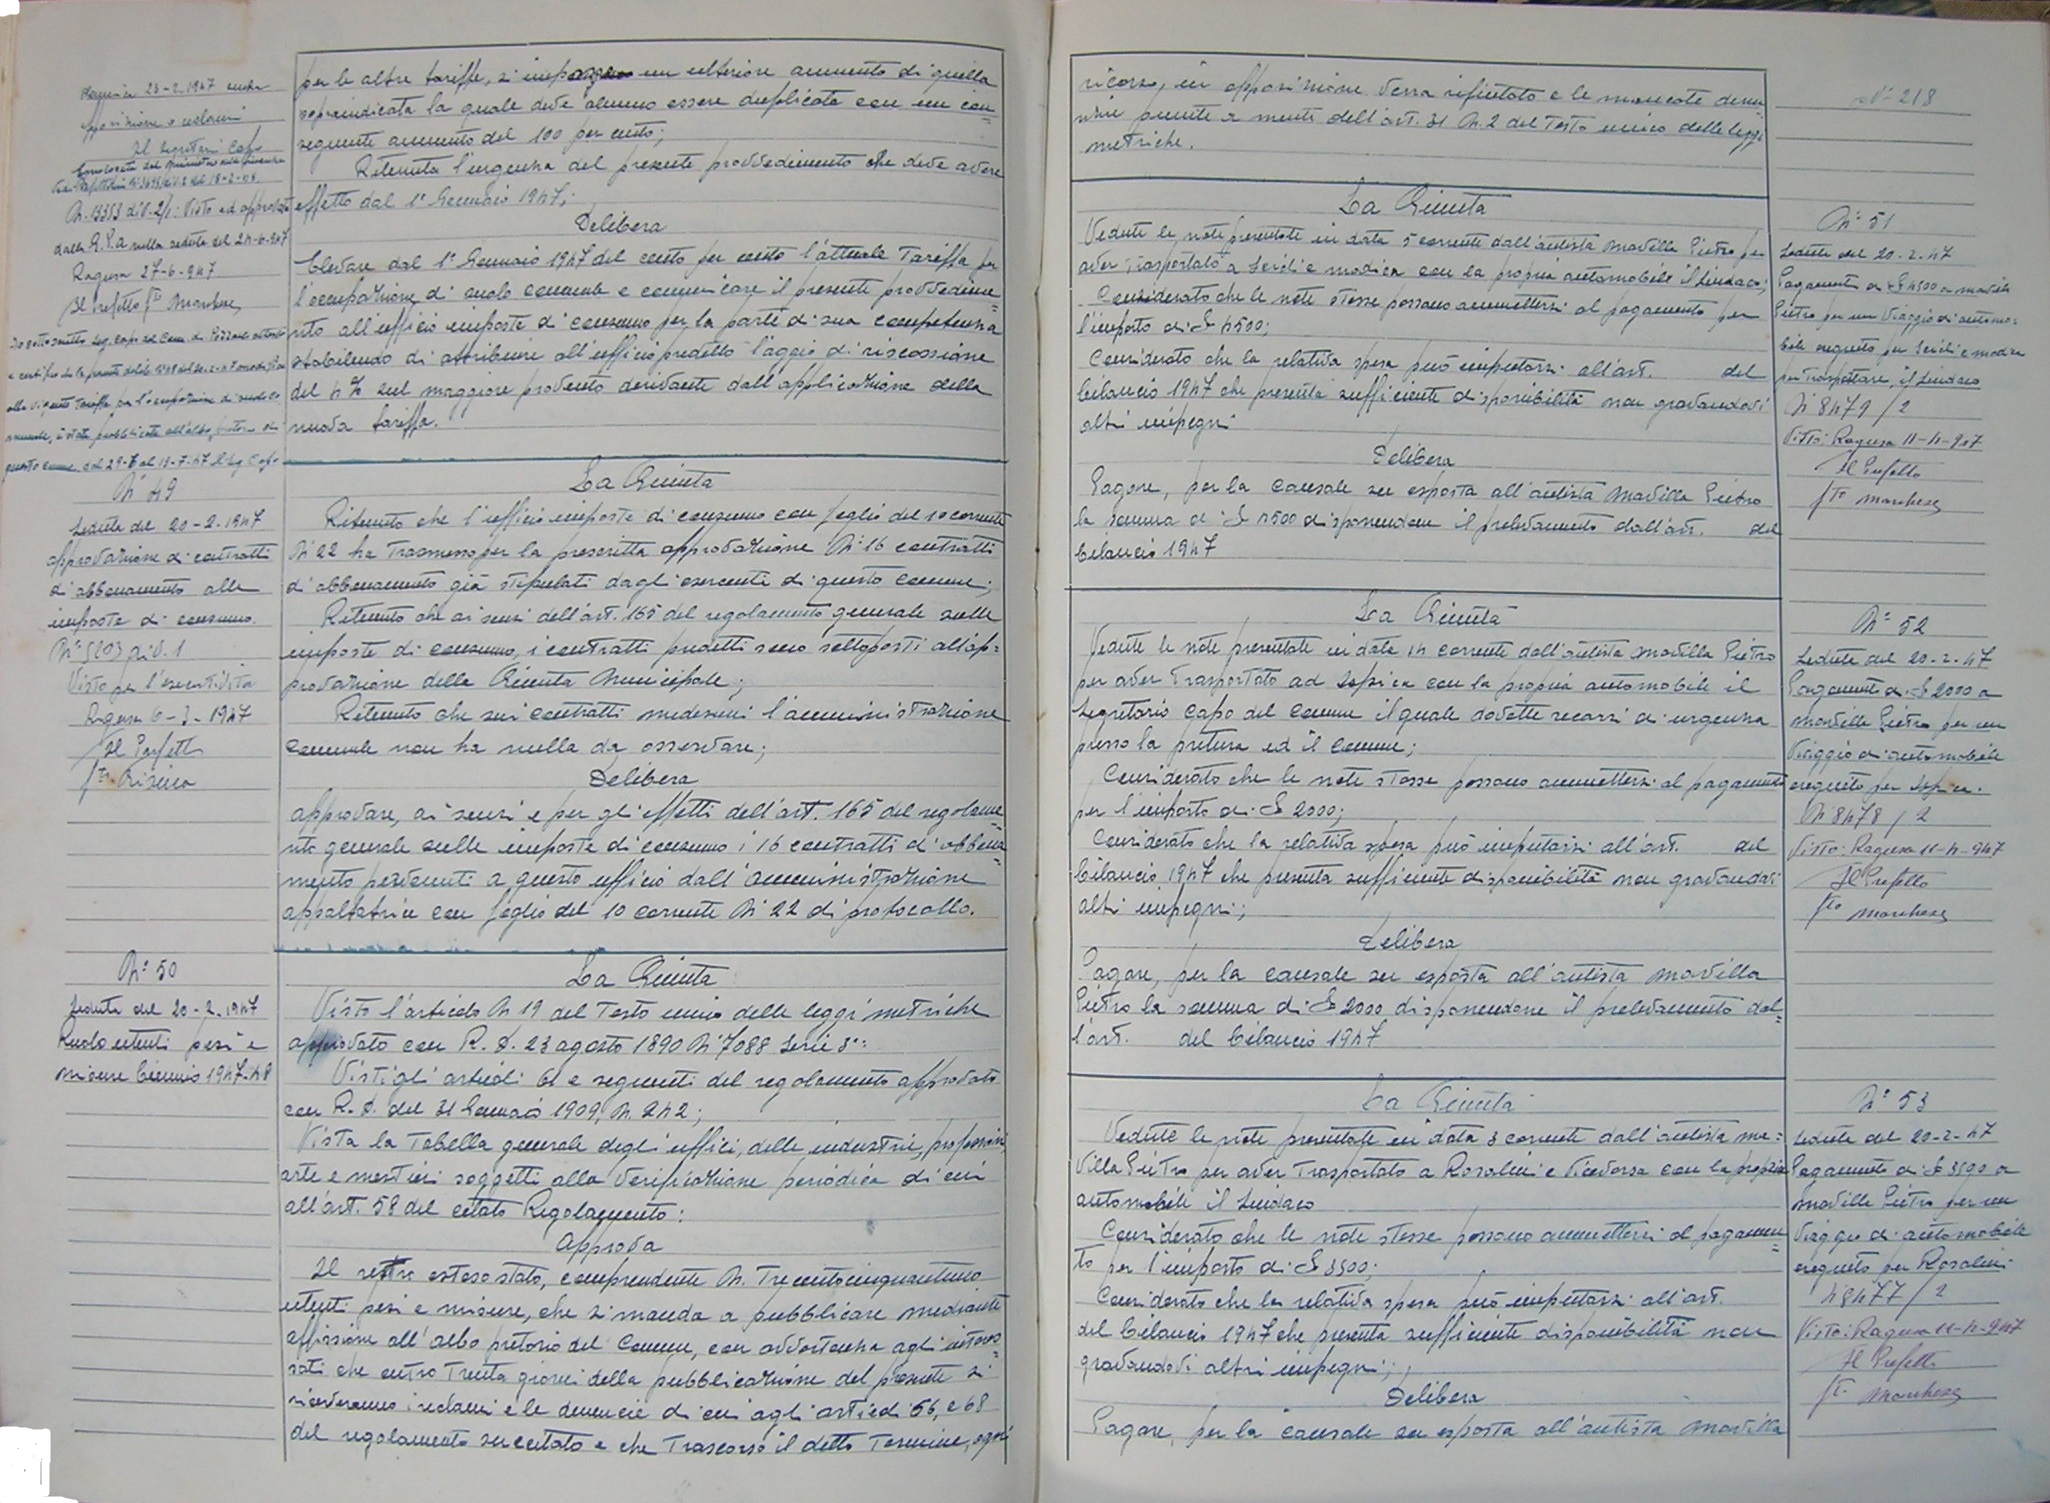 23-2-1947
opposizione o reclami
Il Segretario Capo
dalla G.P.A nella seduta del 24-6-947
Ragusa 27-6-947
Il Prefetto fto Marchese
per le altre tariffe, si impone un ulteriore aumento di quella
sopraindicata la quale deve almeno essere duplicata con un con=
seguente aumento del 100 per cento;
Ritenuta l'urgenza del presente provvedimento che deve avere
effetto dal 1° Gennaio 1947;
Delibera
Elevare dal 1° Gennaio 1947 del cento per cento l'attuale Tariffa per
l'occupazione di suolo comunale e comunicare il presente provvedime=
nto all'ufficio imposte di consumo per la parte di sua competenza
stabilendo di attribuire all'ufficio predetto l'aggio di riscossione
del 4% sul maggiore provento derivante dall'applicazione della
nuova tariffa.
N° 49
Seduta del 20-2-1947
approvazione di contratti
di abbonamento alle
imposte di consumo.
N° 5203 div. 1
Visto per l'esecutività
Ragusa 6-3-1947
Il Prefetto
La Giunta
Ritenuto che l'ufficio imposte di consumo con foglio del 10 corrente
N° 22 ha Trasmesso per la prescritta approvazione N° 16 contratti
di abbonamento già stipulati dagli esercenti di questo comune;
Ritenuto che ai sensi dell'art. 165 del regolamento generale sulle
imposte di consumo, i contratti predetti sono sottoposti all'ap=
provazione della Giunta Municipale;
Ritenuto che sui contratti medesimi l'amministrazione
comunale non ha nulla da osservare;
Delibera
approvare, ai sensi e per gli effetti dell'art. 165 del regolame=
nto generale sulle imposte di consumo i 16 contratti di abbona=
mento pervenuti a questo ufficio dall'amministrazione
appaltatrice con foglio del 10 corrente N° 22 di protocollo.
N° 50
Seduta del 20-2-1947
Ruolo utenti pesi e
misure biennio 1947-48
La Giunta
Visto l'articolo N 19 del Testo unico delle leggi metriche
approvato con R.D. 23 agosto 1890 N° 7088 serie 3ª:
Visti gli articoli 61 e seguenti del regolamento approvato
con R.D. del 31 Gennaio 1909, N. 242;
Vista la Tabella generale degli uffici, delle industrie, professioni,
arte e mestieri soggetti alla verificazione periodica di cui
all'art. 58 del citato Regolamento:
Approva
Il retro esteso stato, comprendente N. Trecentocinquantuno
utenti pesi e misure, che si manda a pubblicare mediante
affissione all'albo pretorio del Comune, con avvertenza agli interes=
sati che entro Trenta giorni della pubblicazione del presente si
riceveranno i reclami e le denuncie di cui agli articoli 66, e 68
del regolamento succitato e che Trascorso il detto Termine, ogni
ricorso, in opposizione verrà rifiutato e le mancate denu=
nzie punite a mente dell'art. 31 N. 2 del Testo unico delle leggi
metriche.
N° 218
La Giunta
Vedute le note presentate in data 5 corrente dall'autista Mavilla Pietro per
aver Trasportato a Scicli e Modica con la propria automobile il Sindaco;
Considerato che le note stesse possono ammettersi al pagamento per
l'importo di £ 4500;
Considerato che la relativa spesa può imputarsi all'art. del
bilancio 1947 che presenta sufficiente disponibilità non gravandovi
altri impegni
Delibera
Pagare, per la causale su esposta all'autista Mavilla Pietro
la somma di £ 4500 disponendone il prelevamento dall'art. del
bilancio 1947
N° 51
Seduta del 20-2-47
Pagamento di £ 4500 a Mavilla
Pietro per un Viaggio di automo=
bile eseguito per Scicli e Modica
per Trasportare il Sindaco
N° 8479/2
Visto: Ragusa 11-4-947
Il Prefetto
fto Marchese
La Giunta
Vedute le note presentate in data 14 corrente dall'autista Mavilla Pietro
per aver Trasportato ad Ispica con la propria automobile il
Segretario capo del comune il quale dovette recarsi di urgenza
presso la pretura ed il comune;
Considerato che le note stesse possono ammettersi al pagamento
per l'importo di £ 2000;
Considerato che la relativa spesa può imputarsi all'art. del
bilancio 1947 che presenta sufficiente disponibilità non gravandovi
altri impegni;
Delibera
Pagare, per la causale su esposta all'autista Mavilla
Pietro la somma di £ 2000 disponendone il prelevamento dal=
l'art. del bilancio 1947
N° 52
Seduta del 20-2-47
Pagamento di £ 2000 a
Mavilla Pietro per un
Viaggio di automobile
eseguito per Ispica.
N° 8478/2
Visto: Ragusa 11-4-947
Il Prefetto
fto Marchese
La Giunta
Vedute le note presentate in data 3 corrente dall'autista Ma=
villa Pietro per aver Trasportato a Rosolini e Viceversa con la propria
automobile il Sindaco
Considerato che le note stesse possono ammettersi al pagamen=
to per l'importo di £ 3500;
Considerato che la relativa spesa può imputarsi all'art.
del bilancio 1947 che presenta sufficiente disponibilità non
gravandovi altri impegni;
Delibera
Pagare, per la causale su esposta all'autista Mavilla
N° 53
Seduta del 20-2-47
Pagamento di £ 3500 a
Mavilla Pietro per un
Viaggio di automobile
eseguito per Rosolini.
N° 8477/2
Visto: Ragusa 11-4-947
Il Prefetto
fto Marchese